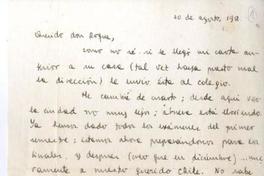 20 de agosto, 198
Querido don Roque,
como no sé si le llegó mi carta an-
terior a su casa (tal vez haya puesto mal
la dirección) le envío ésta al colegio.
Me cambié de cuarto; desde aquí veo
la ciudad no muy lejos; afuera está lloviendo.
Ya hemos dado todos los exámenes del primer
semestre; estamos ahora preparándonos para los
finales. Y después (creo que en diciembre)...
nuevamente a nuestro querido Chile. No sabe